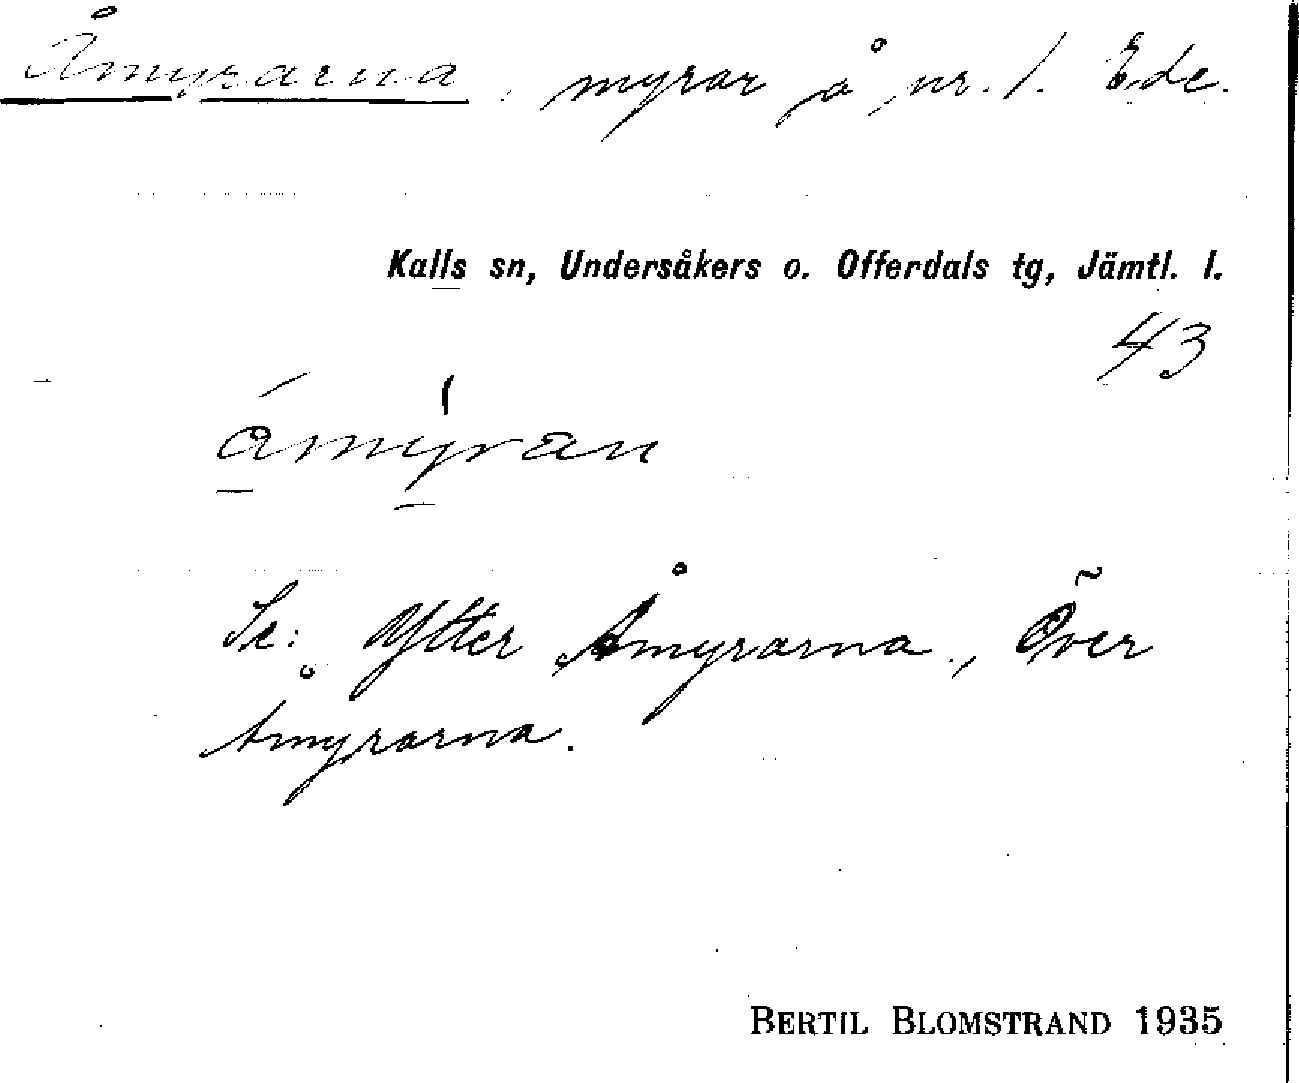 Åmyrarna, myrar å nr. 1. Ede.
Kalls sn, Undersåkers o. Offerdals tg, Jämtl. l.
43
åmyran
Se: Ytter Åmyrarna, Över
Åmyrarna.
BERTIL BLOMSTRAND 1935